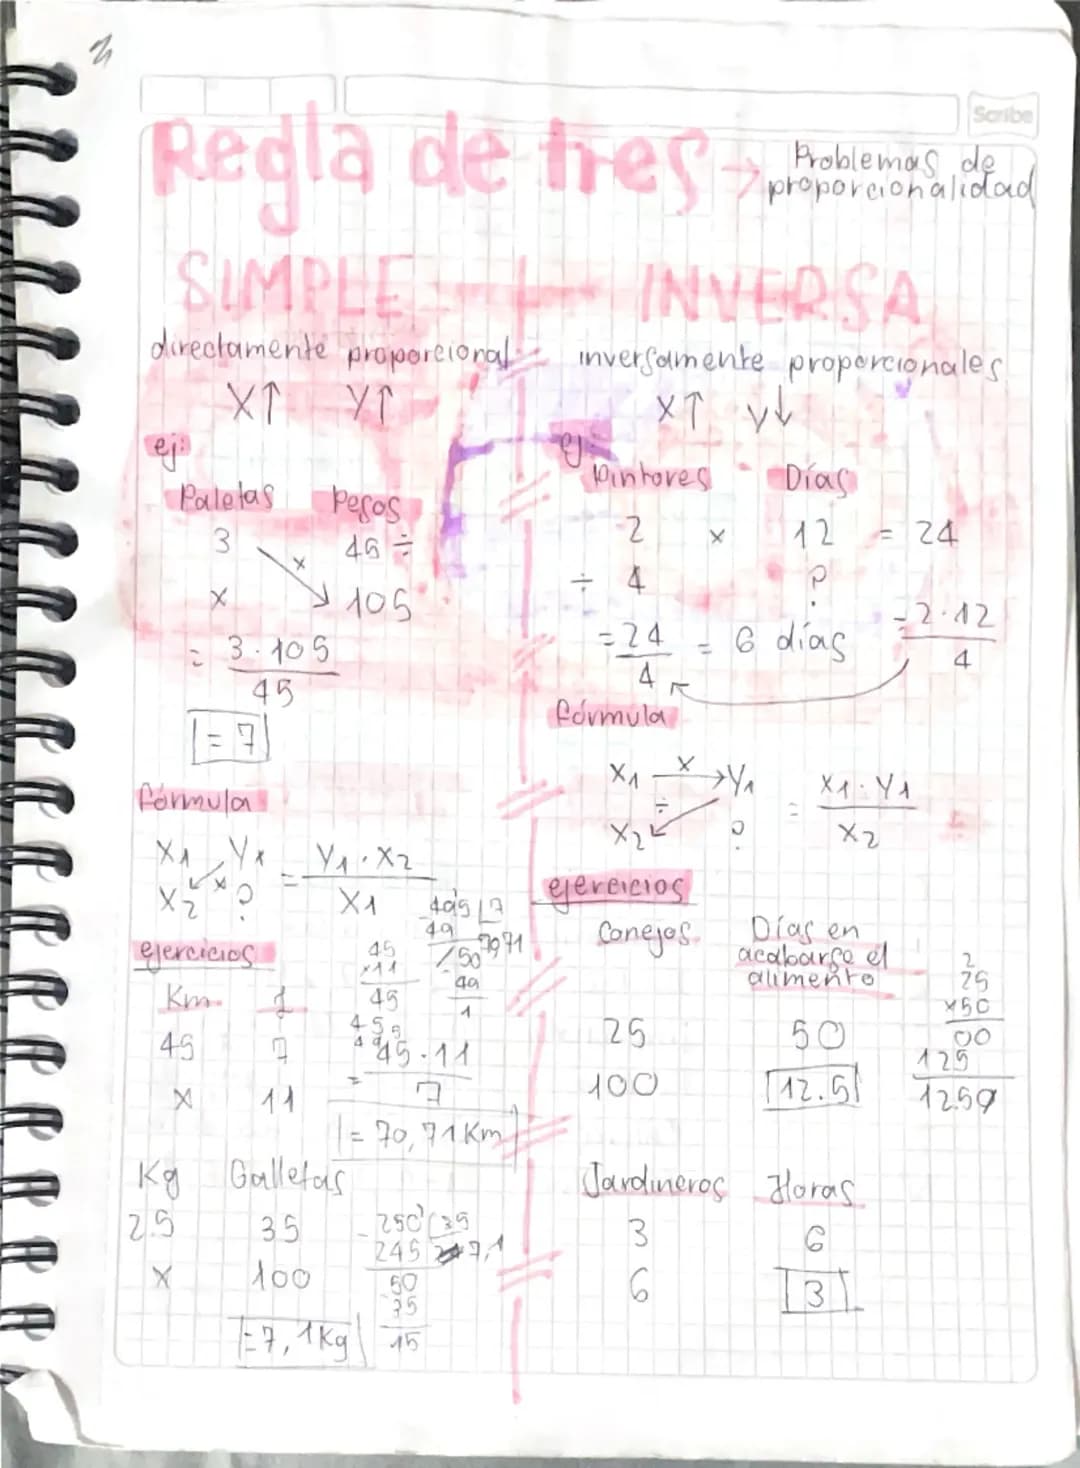 Scribe
Regla de tres → Problemas de
proporcionalidad
SIMPLE
directamente proporcional
X↑ Y↑
ej:
Paletas Pesos
3 45 ÷
x
x 105
= 3·105
45
= 7
fórmula
X1 Y1 = Y1·X2
X2 x ? X1
ejercicios
Km
45 7
x 11
45
x11
45
45
= 45·11
7
= 70,71Km
Kg Galletas
2.5 35
x 100
250 35
245 7,1
50
35
15
=7,1Kg
INVERSA
inversamente proporcionales
X↑ y↓
ej:
Pintores Días
2 x 12 = 24
÷ 4 ?
= 24 = 6 días = 2·12
4 4
fórmula
X1 x → Y1 = X1·Y1
÷
X2 ? X2
ejercicios
Conejos Días en
acabarse el
alimento
25 50
100 12.5
2
25
x50
00
125
1250
Jardineros Horas
3 6
6 3